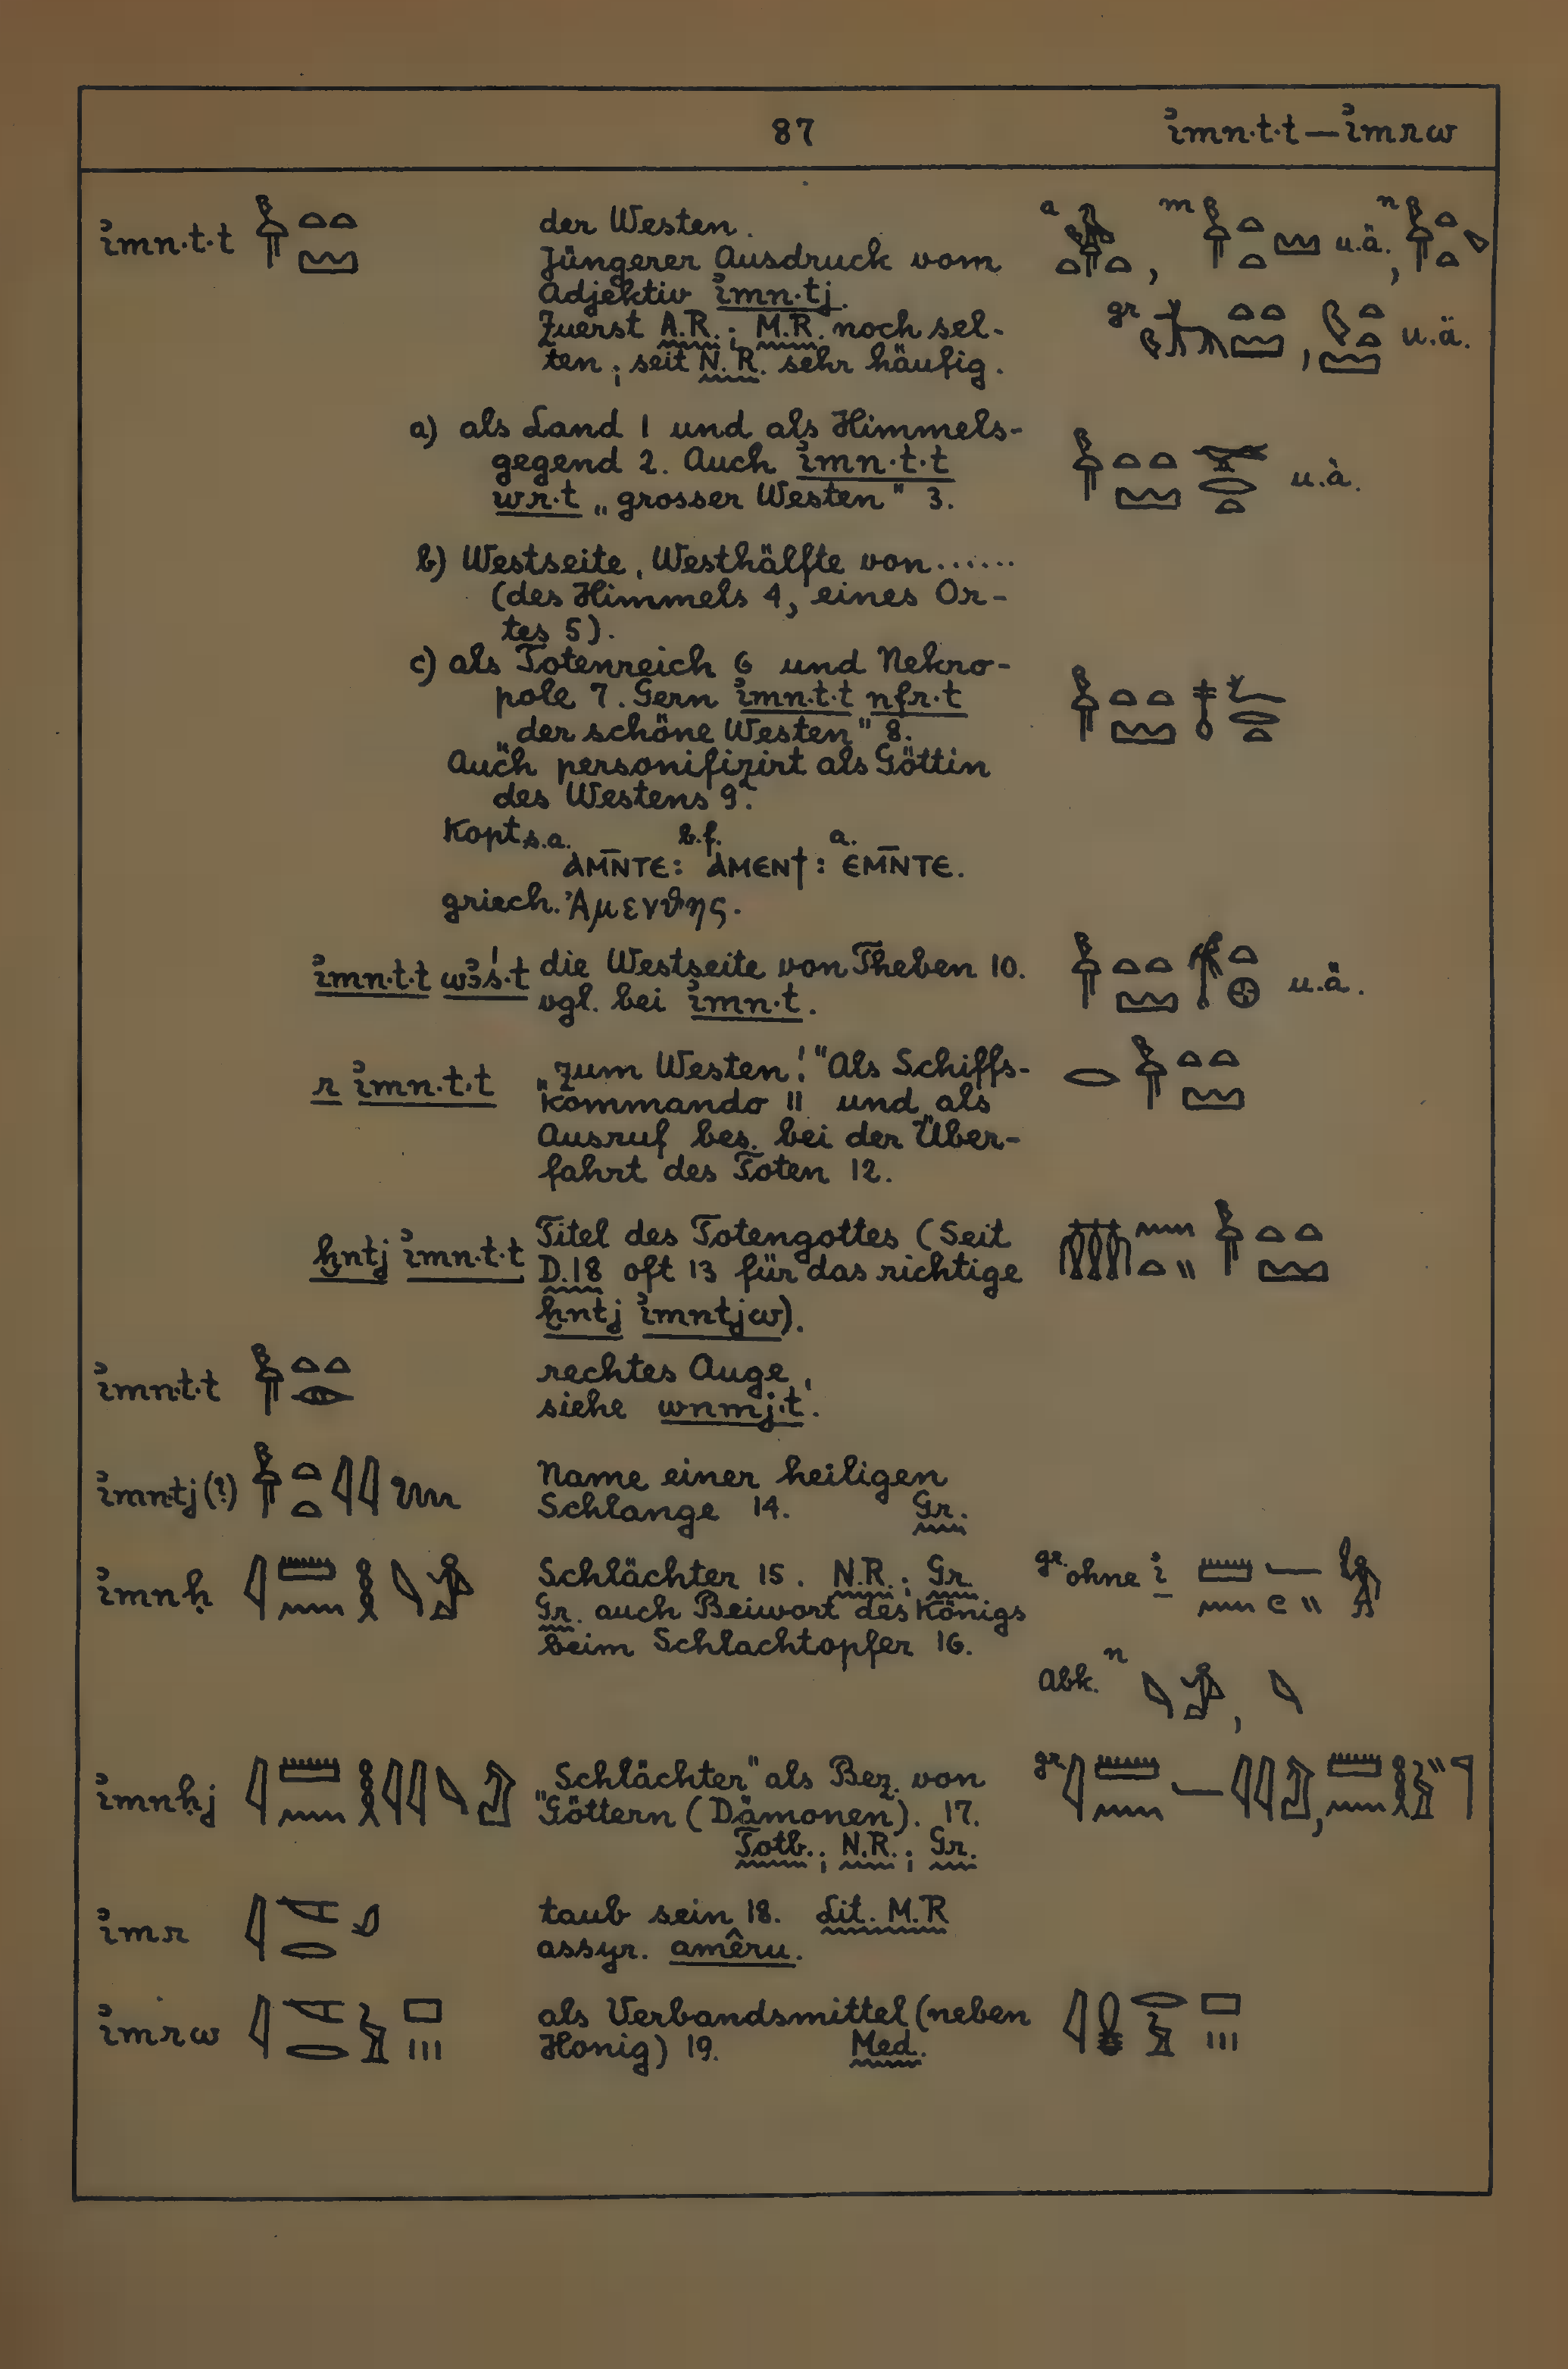 87 ỉmn.t.t — ỉmrw
ỉmn.t.t der Westen.
Jüngerer Ausdruck vom
Adjektiv ỉmn.tj.
Zuerst A.R.; M.R. noch sel-
ten; seit N.R. sehr häufig.
a , m u.ä., n
gr , u.ä.
a) als Land 1 und als Himmels-
gegend 2. Auch ỉmn.t.t
wr.t „grosser Westen" 3.
u.ä.
b) Westseite, Westhälfte von......
(des Himmels 4, eines Or-
tes 5).
c) als Totenreich 6 und Nekro-
pole 7. Gern ỉmn.t.t nfr.t
„der schöne Westen" 8.
Auch personifizirt als Göttin
des Westens 9.
Kopt. s.a. ⲀⲘⲚ̄ⲦⲈ: b.f. ⲀⲘⲈⲚϮ: a. ⲈⲘⲚ̄ⲦⲈ.
griech. Ἀμενθης.
ỉmn.t.t wꜣś.t die Westseite von Theben 10.
vgl. bei ỉmn.t.
u.ä.
r ỉmn.t.t „Zum Westen!" Als Schiffs-
kommando 11 und als
Ausruf bes. bei der Über-
fahrt des Toten 12.
ḫntj ỉmn.t.t Titel des Totengottes (Seit
D.18 oft 13 für das richtige
ḫntj ỉmntjw).
ỉmn.t.t rechtes Auge,
siehe wnmj.t.
ỉmn.tj (?) Name einer heiligen
Schlange 14. Gr.
ỉmnḥ Schlächter 15. N.R.; Gr.
Gr. auch Beiwort des Königs
beim Schlachtopfer 16.
gr. ohne ỉ
Abk. n ,
ỉmnḥj „Schlächter" als Bez. von
Göttern (Dämonen). 17.
Totb.; N.R.; Gr.
gr. ,
ỉmr taub sein 18. Lit. M.R
assyr. amêru.
ỉmrw als Verbandsmittel (neben
Honig) 19. Med.